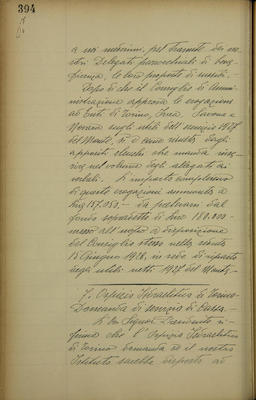 394
a noi medesimi, pel tramite dei no-
stri Delegati parrocchiali di bene-
ficenza, le loro proposte di sussidi.
Dopo di che il Consiglio di Ammi-
nistrazione approva le erogazioni
ad Enti di Torino, Ivrea, Savona e
Novara sugli utili dell'esercizio 1927
del Monte, di cui
appositi elenchi che manda inse-
rire nel volume degli allegati ai
verbali. L'importo complessivo
di queste erogazioni ammonta a
Lire 157.050.- da prelevarsi dal
fondo sopradetto di Lire 180.000
messo all'uopo a disposizione
del Consiglio stesso nella seduta
15 Giugno 1928, in sede di riparto
degli utili netti 1927 del Monte.
7. Ospizio Israelitico di Torino-
Domanda di servizio di Cassa.
Il Signor Presidente ri-
ferisce che l'Ospizio Israelitico
di Torino domanda se il nostro
Istituto sarebbe disposto ad